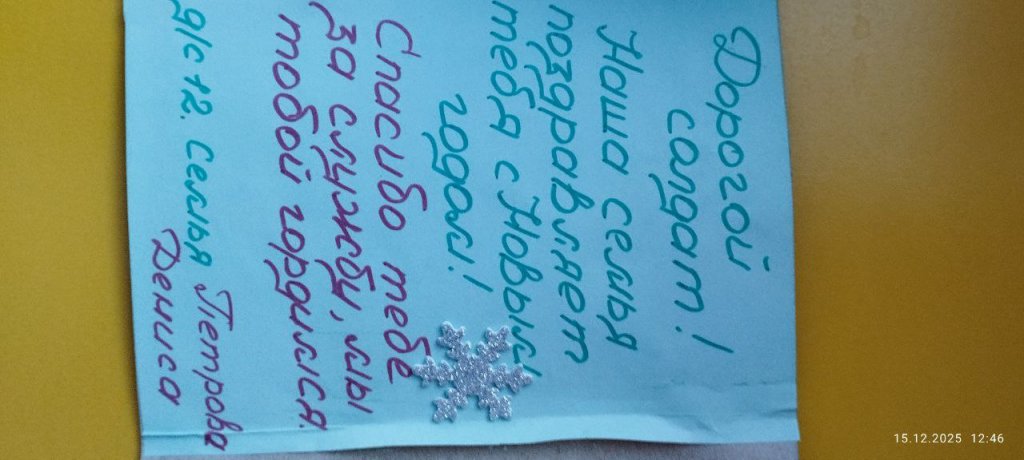 Дорогой
солдат!
Наша семья
поздравляет
тебя с Новым
годом!
Спасибо тебе
за службу, мы
тобой гордимся.
д/с 12. Семья Петрова
Дениса
15.12.2025 12:46